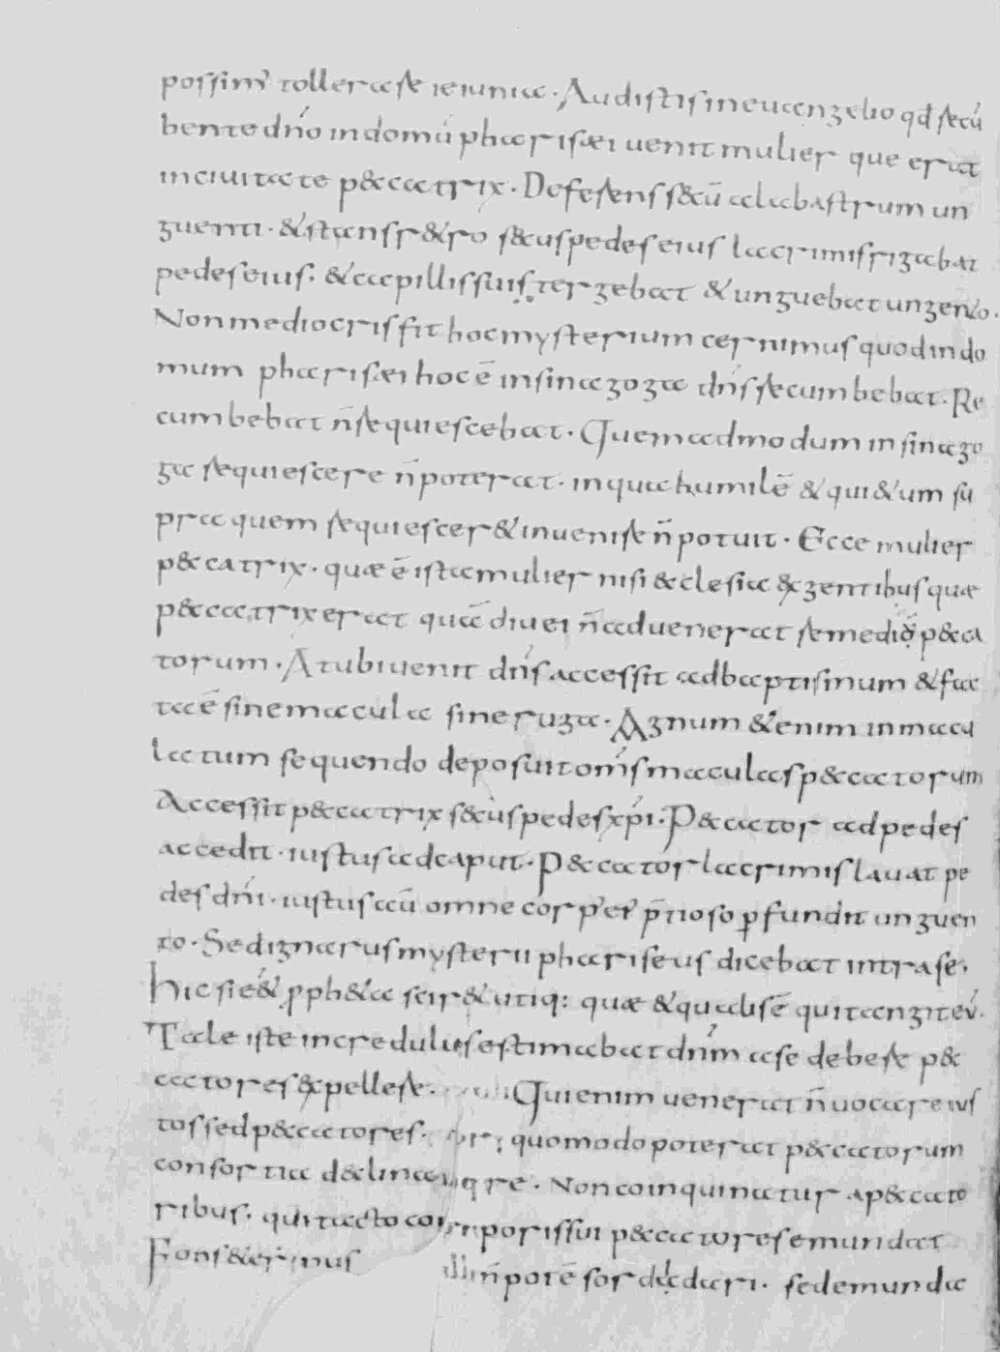 possim᾽ tollerasse ieiunia. Audistis in euangelio qđ recū
bente dn̄o in domū pharisæi uenit mulier que erat
in ciuitate p&catrix. Deferens s&cū alabastrum un
guenti. & stans r&ro secus pedes eius lacrimis rigabat
pedes eius. & capillis suis tergebat & unguebat ungento.
Non mediocris fit hoc mysterium cernimus quod in do
mum pharisæi hoc ē in sinagoga dn̄s recumbebat. Re
cumbebat n̄ requiescebat. Quemadmodum in sinago
ga requiescere n̄ poterat. in qua humilē & qui&um su
pra quem requiescer& inuenire n̄ potuit. Ecce mulier
p&catrix. quæ ē ista mulier nisi &clesia &x gentibus quæ
p&catrix erat quā diu ei n̄ aduenerat remediū p&ca
torum. At ubi uenit dn̄s accessit ad baptismum & fac
ta ē sine macula sine ruga. Agnum &enim inmacu
latum sequendo deposuit om̄s maculas p&catorum
Accessit p&catrix s&us pedes xp̄i. P&cator ad pedes
accedit. iustus ad caput. P&cator lacrimis lauat pe
des dn̄i. iustus aū omne corp᾽ ei᾽ p̄tioso ꝑfundit unguen
to. Sed ignarus mysterii phariseus dicebat intra se.
Hic si e& ꝓph&a scir& utiq: quæ & qualis ē qui tangit eū.
Tale iste incredulus estimabat dn̄m a se debere p&
catores expellere. Qui enim uenerat n̄ uocare ius
tos sed p&catores. quomodo poterat p&catorum
consortia declina re. Non coinquinatur a p&cato
ribus. qui tacto corporis sui p&catores emundat
Fons &ernus n̄ potē sordidari. sed emunda